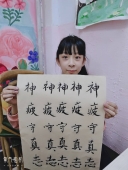 神疲守真志
神疲守真志
神疲守真志
神疲守真志
神疲守真志